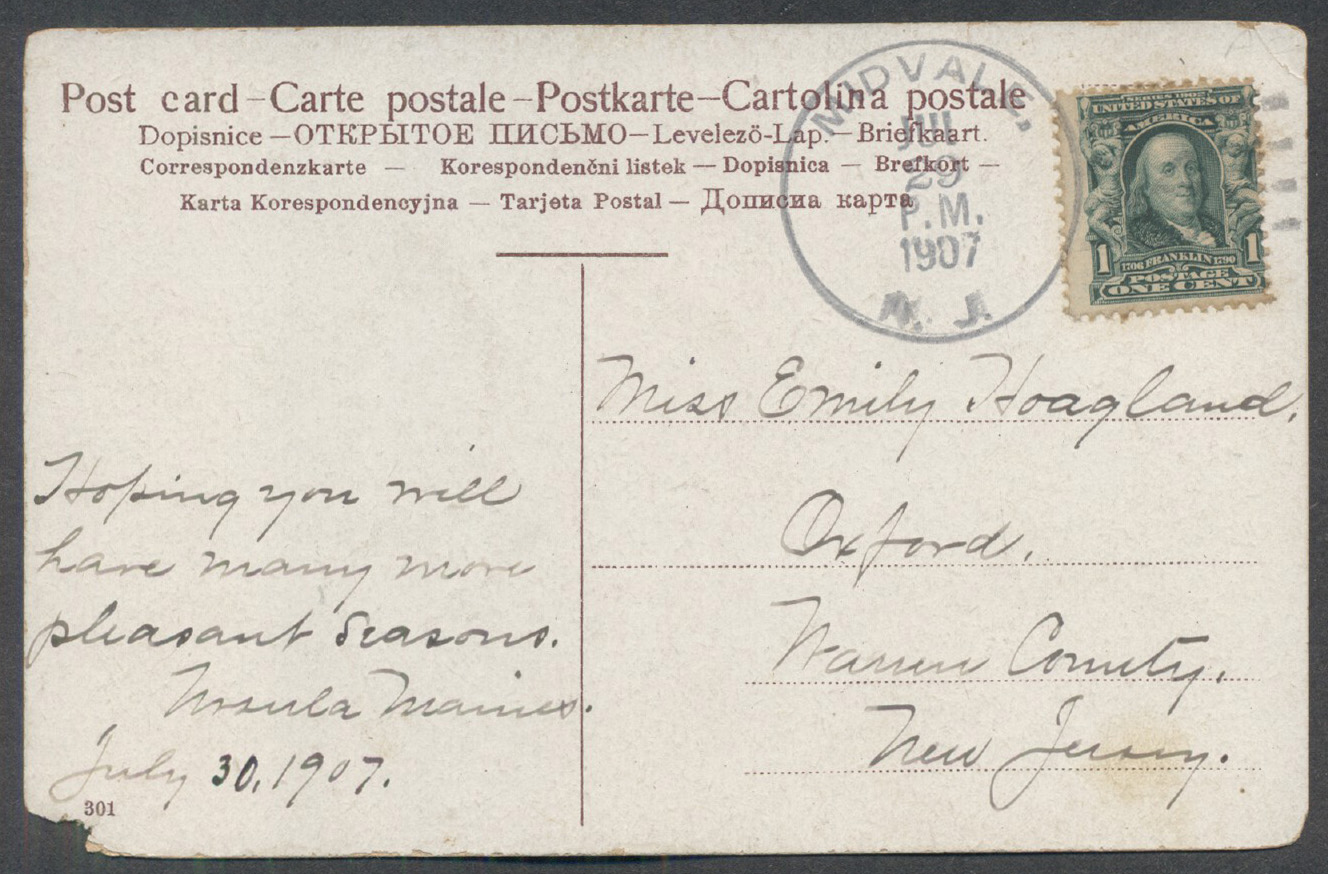 Post card – Carte postale – Postkarte – Cartolina postale
Dopisnice – ОТКРЫТОЕ ПИСЬМО – Levelező-Lap. – Briefkaart.
Correspondenzkarte – Korespondenčni listek – Dopisnica – Brefkort –
Karta Korespondencyjna – Tarjeta Postal – Дописна карта
MIDVALE,
JUL
29
P.M.
1907
N. J.
SERIES 1902
UNITED STATES OF
AMERICA
1 1706 FRANKLIN 1790 1
POSTAGE
ONE CENT
Miss Emily Hoagland,
Oxford.
Warren County.
New Jersey.
Hoping you will
have many more
pleasant seasons.
Ursula Maines.
July 30, 1907.
301